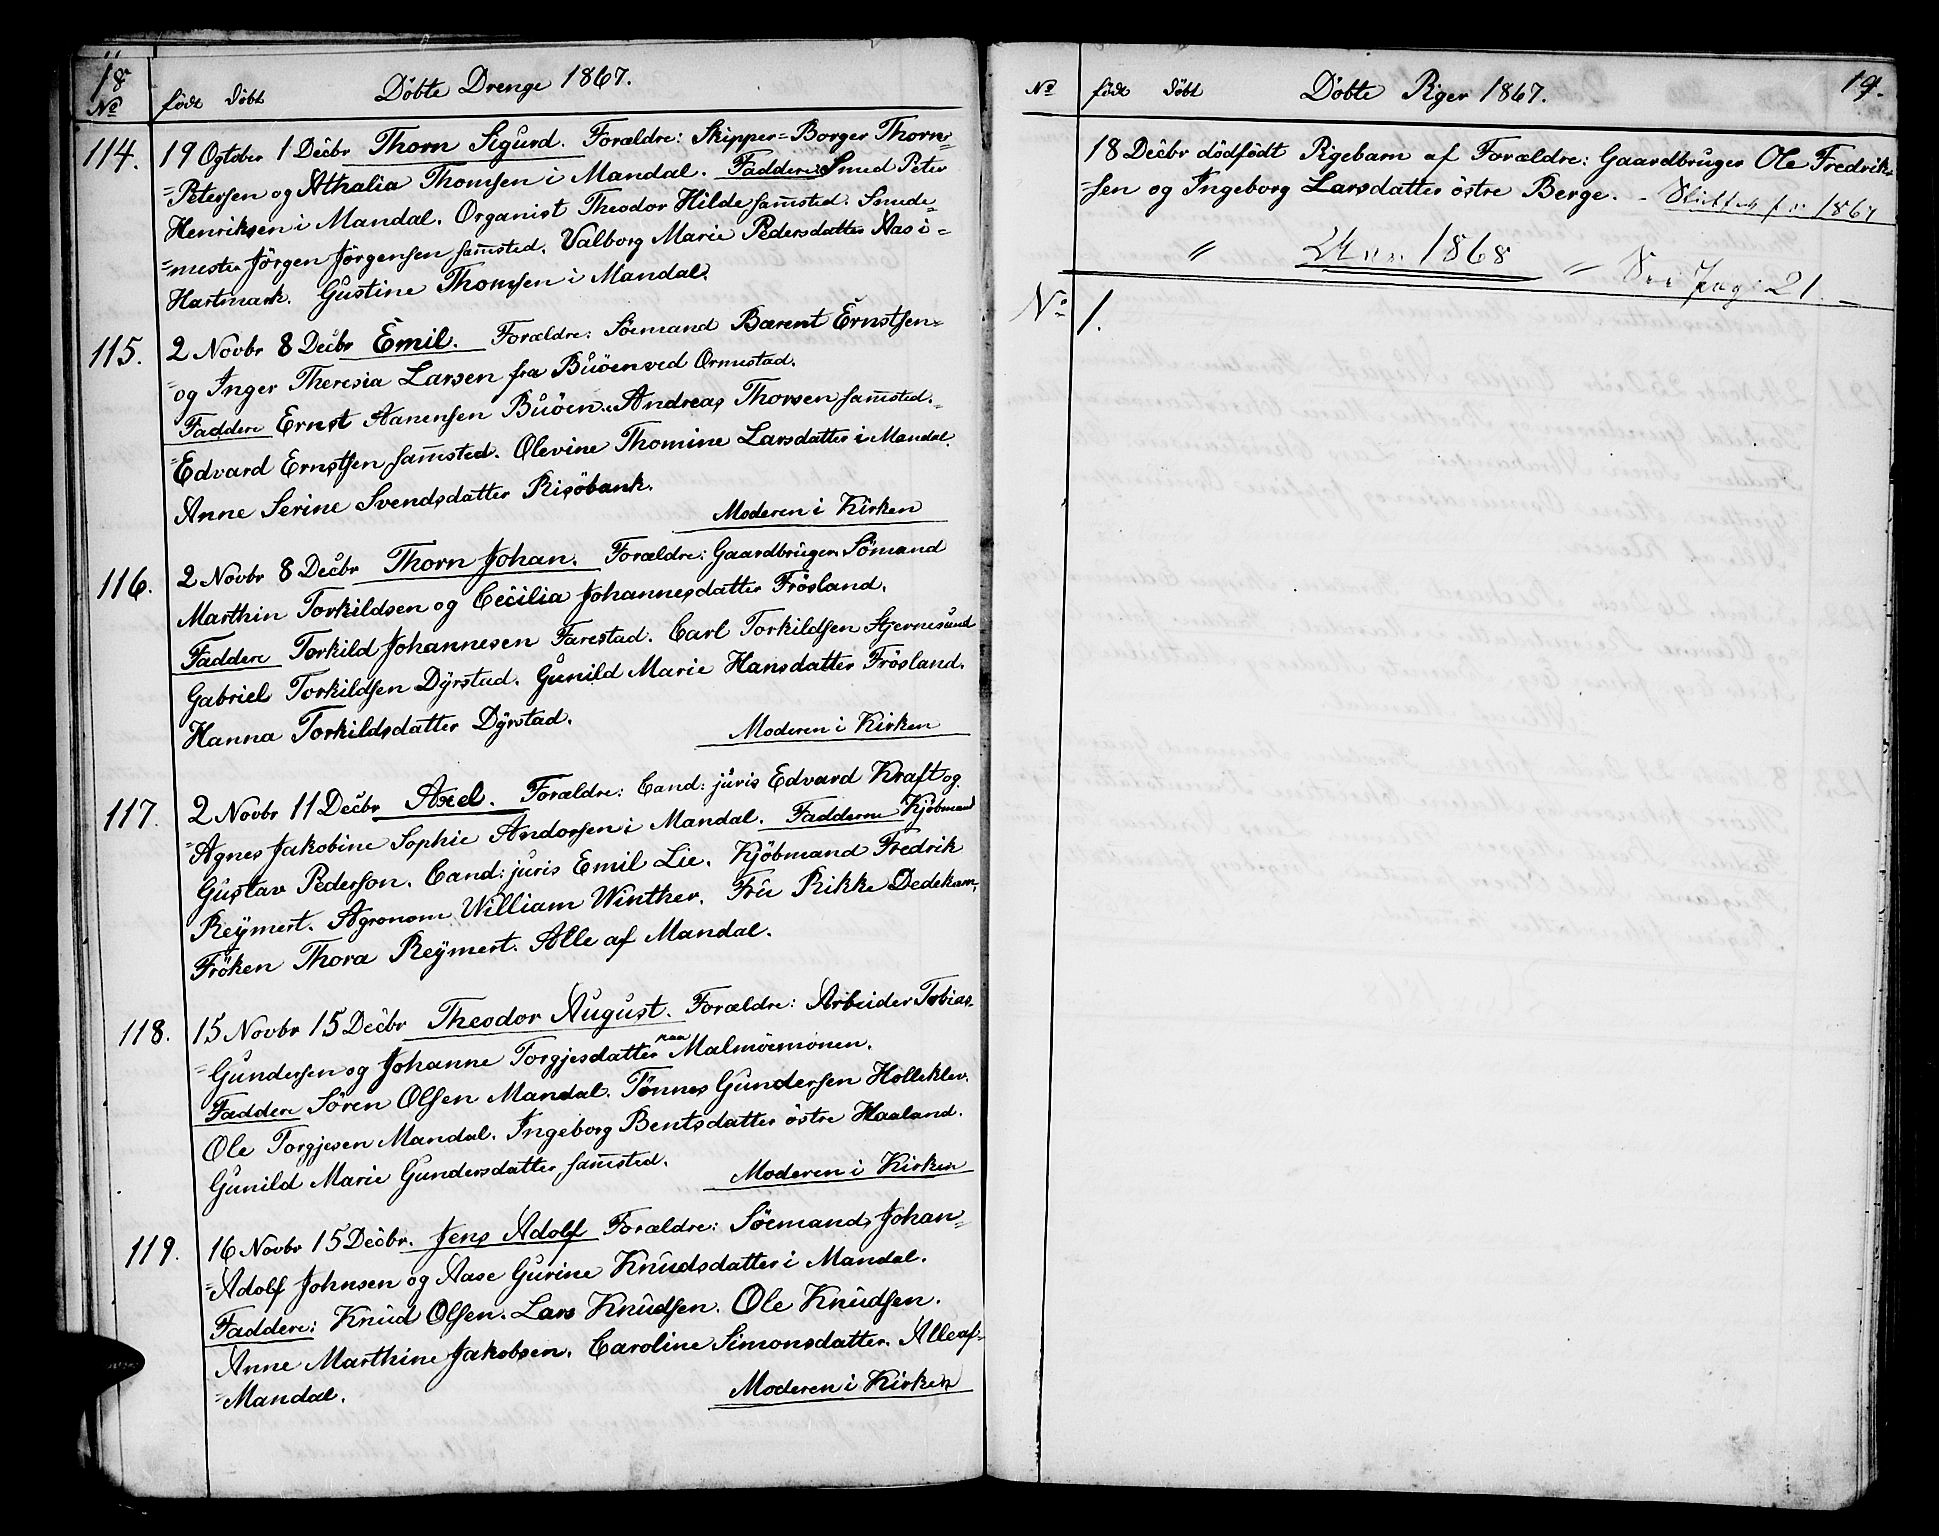 18
No født døbt Døbte Drenge 1867.
114. 19 Ogtober 1 Decbr Thorn Sigurd. Forældre: Skipper-Borger Thorn-
-Petersen og Athalia Thomsen i Mandal. Faddere: Smed Peter
Henriksen i Mandal. Organist Theodor Hilde samsted. Smede-
-mester Jørgen Jørgensen samsted. Valborg Marie Pedersdatter Aas i -
Hartmark. Gustine Thomsen i Mandal.
115. 2 Novbr 8 Decbr Emil. Forældre: Søemand Bærent Ernstsen-
-og Inger Theresia Larsen fra Buøen ved Ormestad.
Faddere Ernst Aanensen Buøen. Andreas Thorsen samsted.-
-Edvard Ernstsen samsted. Olevine Thomine Larsdatter i Mandal.
Anne Serine Svendsdatter Risøbank.
Moderen i Kirken
116. 2 Novbr 8 Decbr Thorn Johan. Forældre: Gaardbruger Sömand
Marthin Torkildsen og Cecilia Johannesdatter Frøsland.
Faddere Torkild Johannesen Farestad. Carl Torkildsen Stjernesund
Gabriel Torkildsen Dyrstad. Gunild Marie Hansdatter Frøsland.
Hanna Torkildsdatter Dyrstad.
Moderen i Kirken
117. 2 Novbr 11 Decbr Axel. Forældre: Cand: juris Edvard Kraft og
-Agnes Jakobine Sophie Andorsen i Mandal. Fadderne Kjöbmand
Gustav Pederson. Cand: juris Emil Lie. Kjöbmand Fredrik
Reymert. Agronom William Winther. Fru Rikke Dedekam,
Fröken Thora Reymert. Alle af Mandal.
118. 15 Novbr 15 Decbr Theodor August. Forældre: Arbeider Tobias-
-Gundersen og Johanne Torgjesdatter paa Malmöemonen.
Faddere Sören Olsen Mandal. Tönnes Gundersen Holleklev.
Ole Torgjesen Mandal. Ingeborg Bentsdatter östre Haaland.
Gunild Marie Gundersdatter samsted.
Moderen i Kirken
119. 16 Novbr 15 Decbr. Jens Adolf Forældre: Söemand Johan-
-Adolf Johnsen og Aase Gurine Knudsdatter i Mandal.
Faddere: Knud Olsen. Lars Knudsen. Ole Knudsen.
Anne Marthine Jakobsen. Caroline Simonsdatter. Alle af-
-Mandal.
Moderen i Kirken
No født Döbt Döbte Piger 1867. 19.
18 Decbr dödfödt Pigebarn af Forældre: Gaardbruger Ole Fredrik-
-sen og Ingeborg Larsdatter östre Berge. - Sluttet for 1867
" Aar 1868 " See Page 21.
No 1.